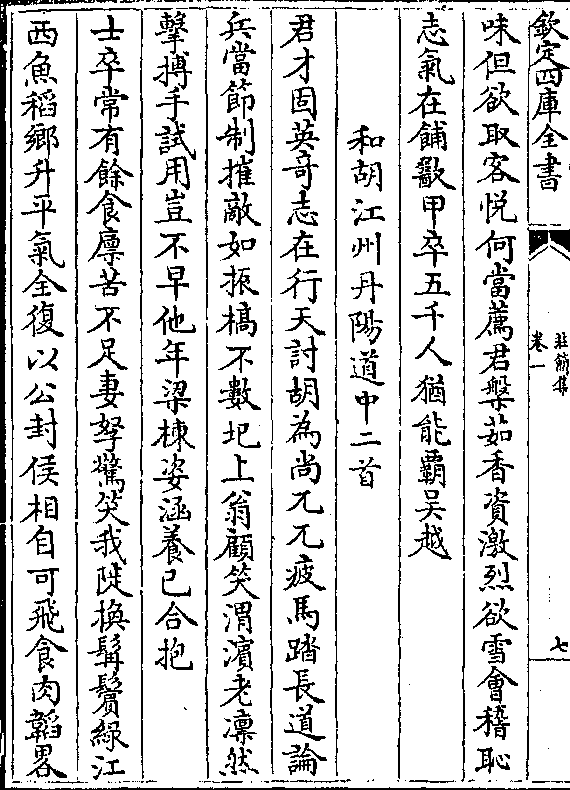 欽定四庫全書
莊簡集
卷一
七
味但欲取客悦何當薦君槃茹香資激烈欲雪會稽恥
志氣在餔歠甲卒五千人猶能覇吴越
和胡江州丹陽道中二首
君才固英竒志在行天討胡為尚兀兀疲馬踏長道論
兵當節制摧敵如振槁不數圯上翁顧笑渭濵老凜然
擊搏手試用豈不早他年梁棟姿涵養已合抱
士卒常有餘食廪苦不足妻孥驚笑我陡換髯鬢緑江
西魚稻鄉升平氣全復以公封侯相自可飛食肉韜畧